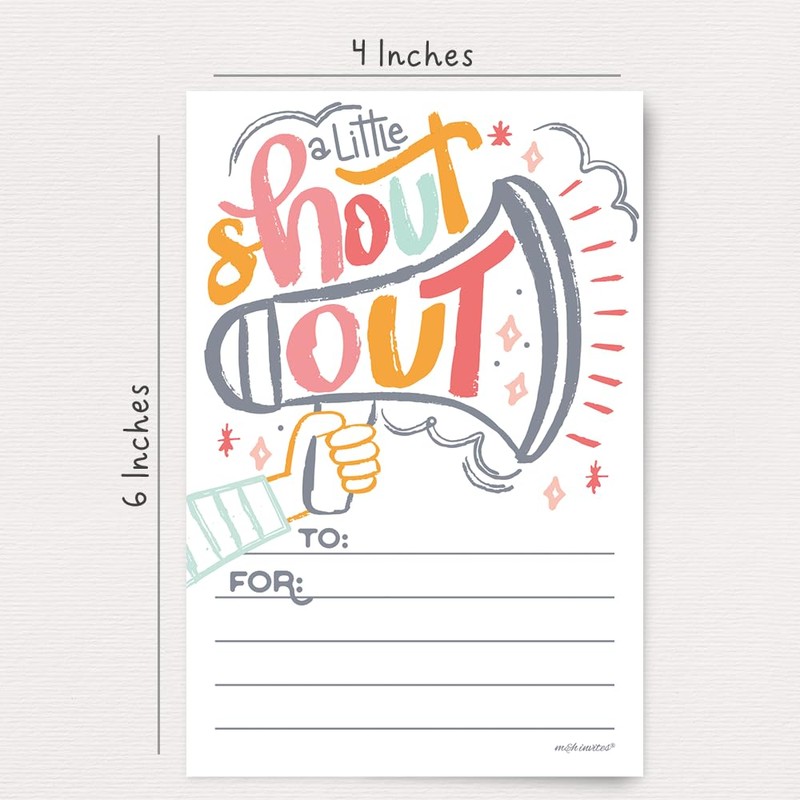 4 Inches
6 Inches
a Little
shout
OUT
TO:
FOR:
m&h invites®